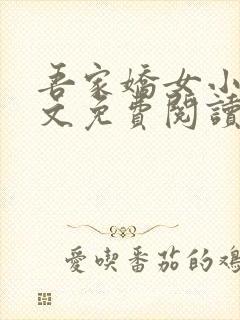 吾家嬌女小
文免費閱讀
愛喫番茄的雞